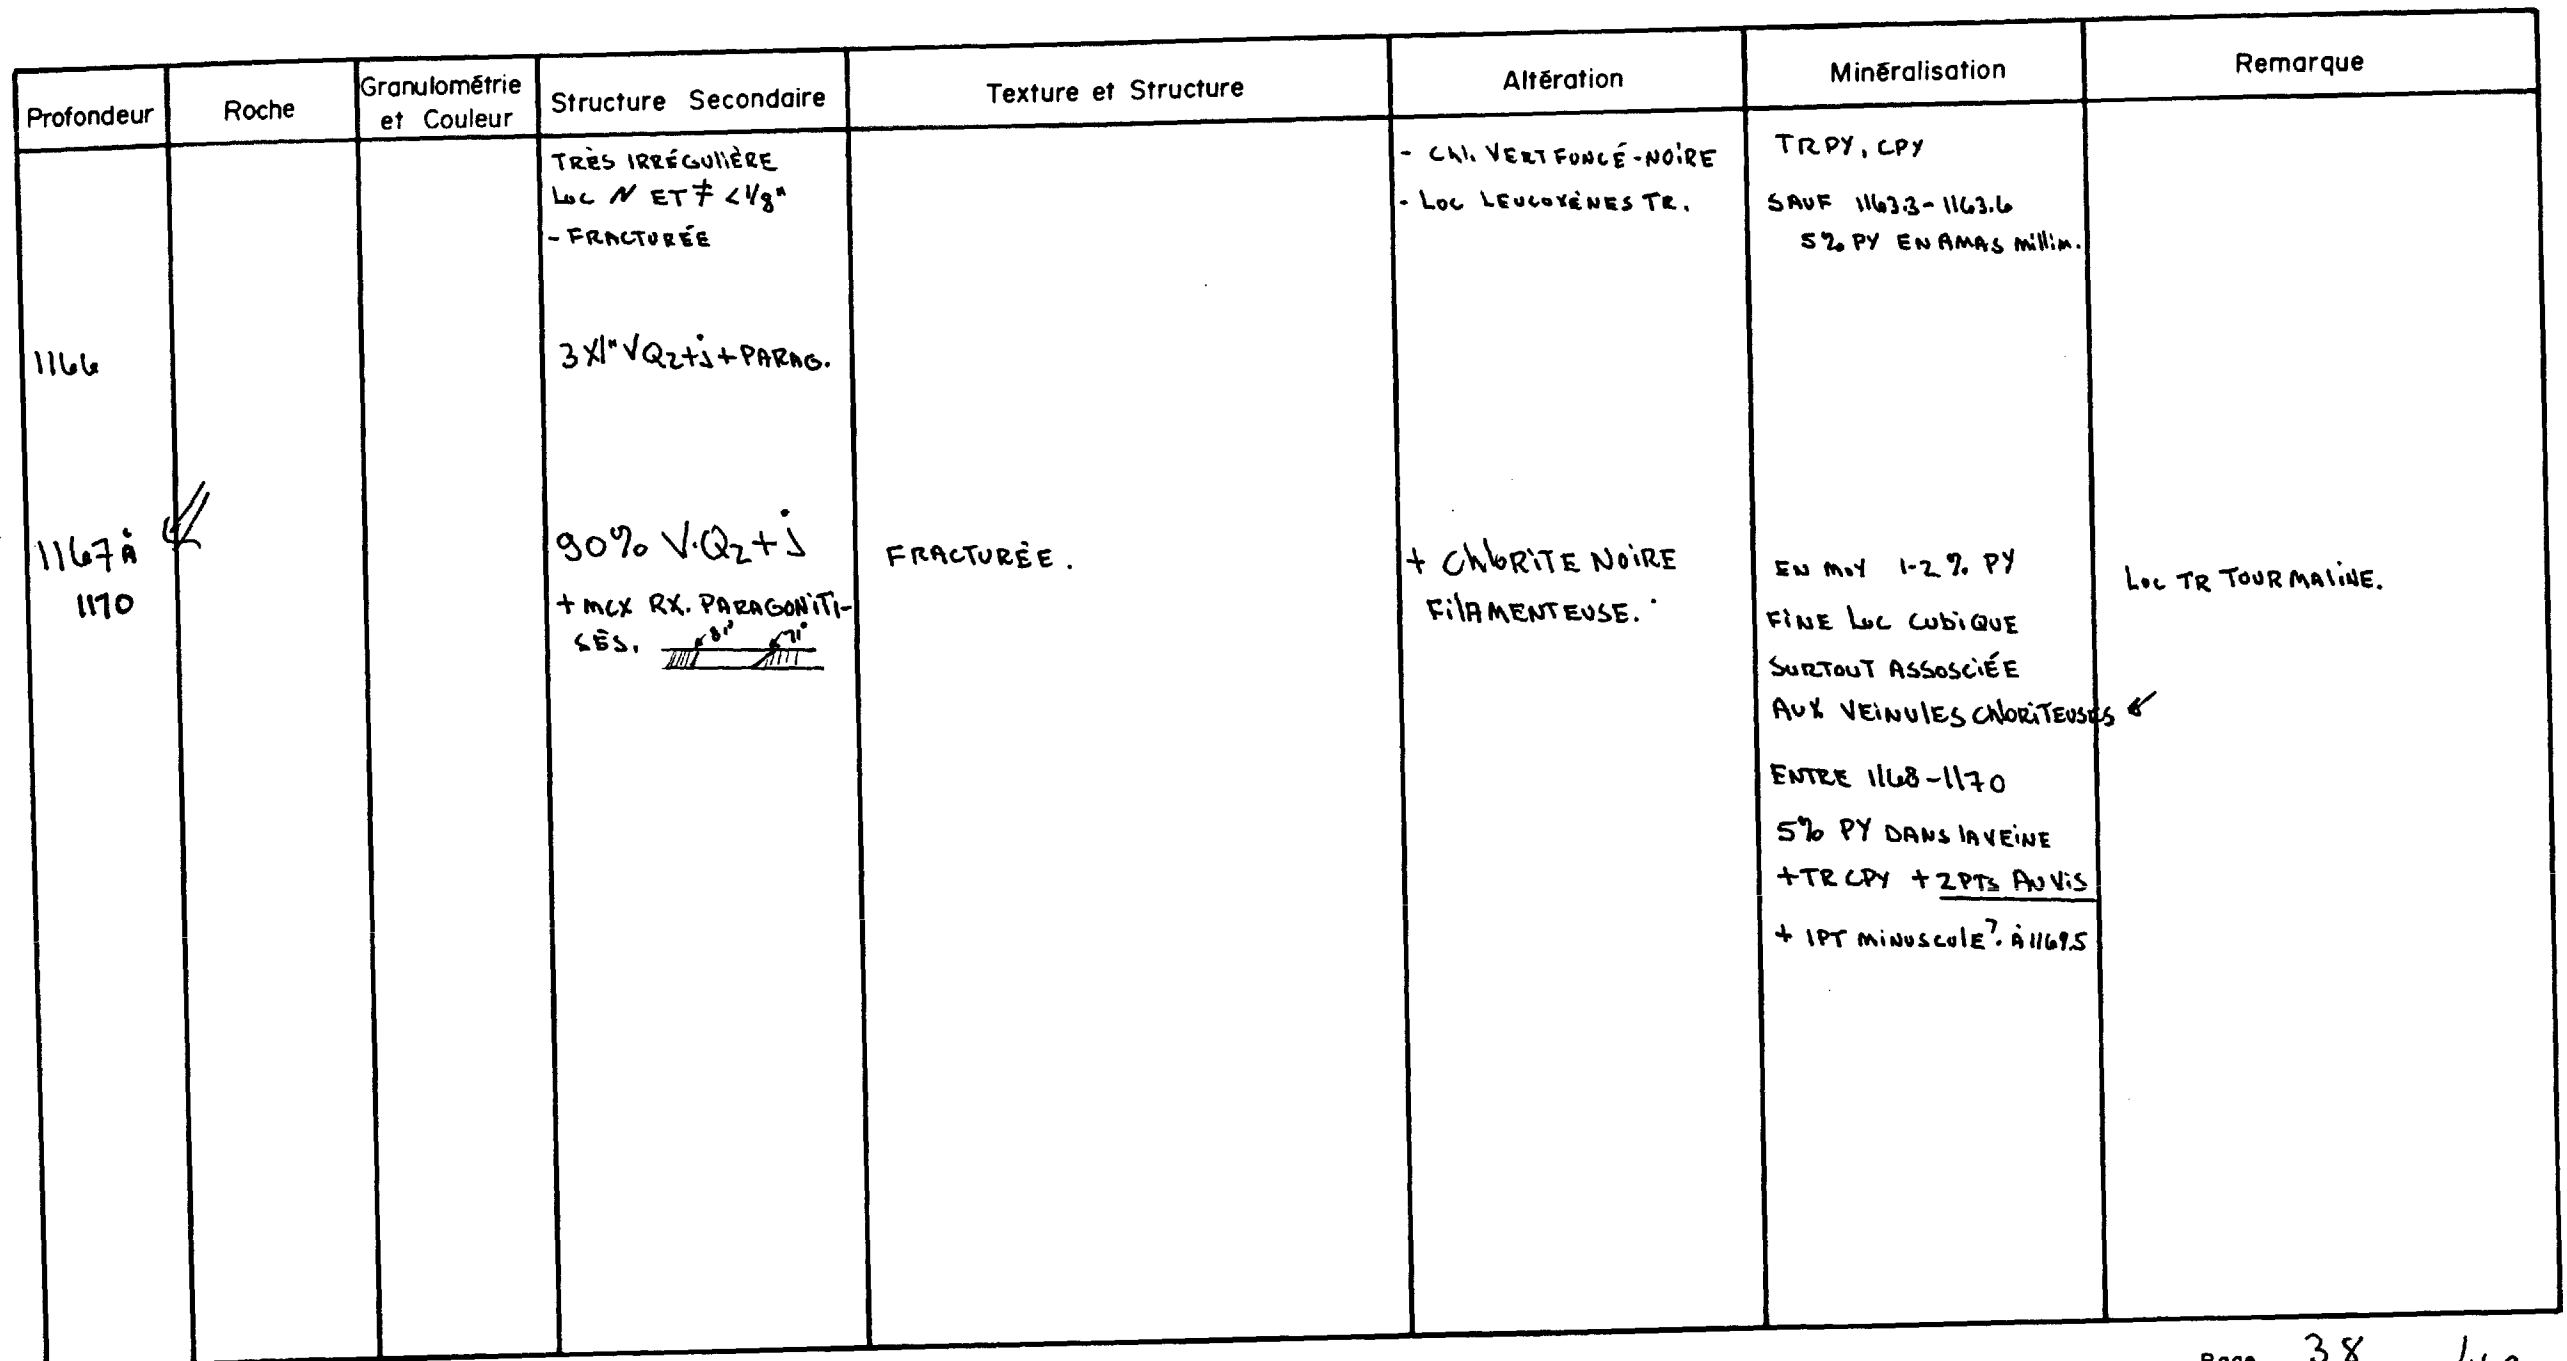 Profondeur
Roche
Granulométrie
et Couleur
Structure Secondaire
Texture et Structure
Altération
Minéralisation
Remarque
TRÈS IRRÉGULIÈRE
LOC N ET ≠ <1/8"
- FRACTURÉE
- Chl. VERT FONCÉ-NOIRE
- LOC LEUCOXÈNES TR.
TR PY, CPY
SAUF 1163.3-1163.6
5% PY EN AMAS millim.
1166
3X1" VQz+j+PARAG.
1167 À
1170
90% V.Qz+j
+ MCX RX. PARAGONITI-
SÉS.
81°
71°
FRACTURÉE.
+ ChlORITE NOIRE
FilAMENTEUSE.
EN MOY 1-2% PY
FINE LOC CUBIQUE
SURTOUT ASSOSCIÉE
AUX VEINULES ChlORITEUSES
ENTRE 1168-1170
5% PY DANS LA VEINE
+TR CPY + 2PTS AU VIS
+ 1PT MINUSCULE?. À 1169.5
LOC TR TOURMALINE.
Page 38